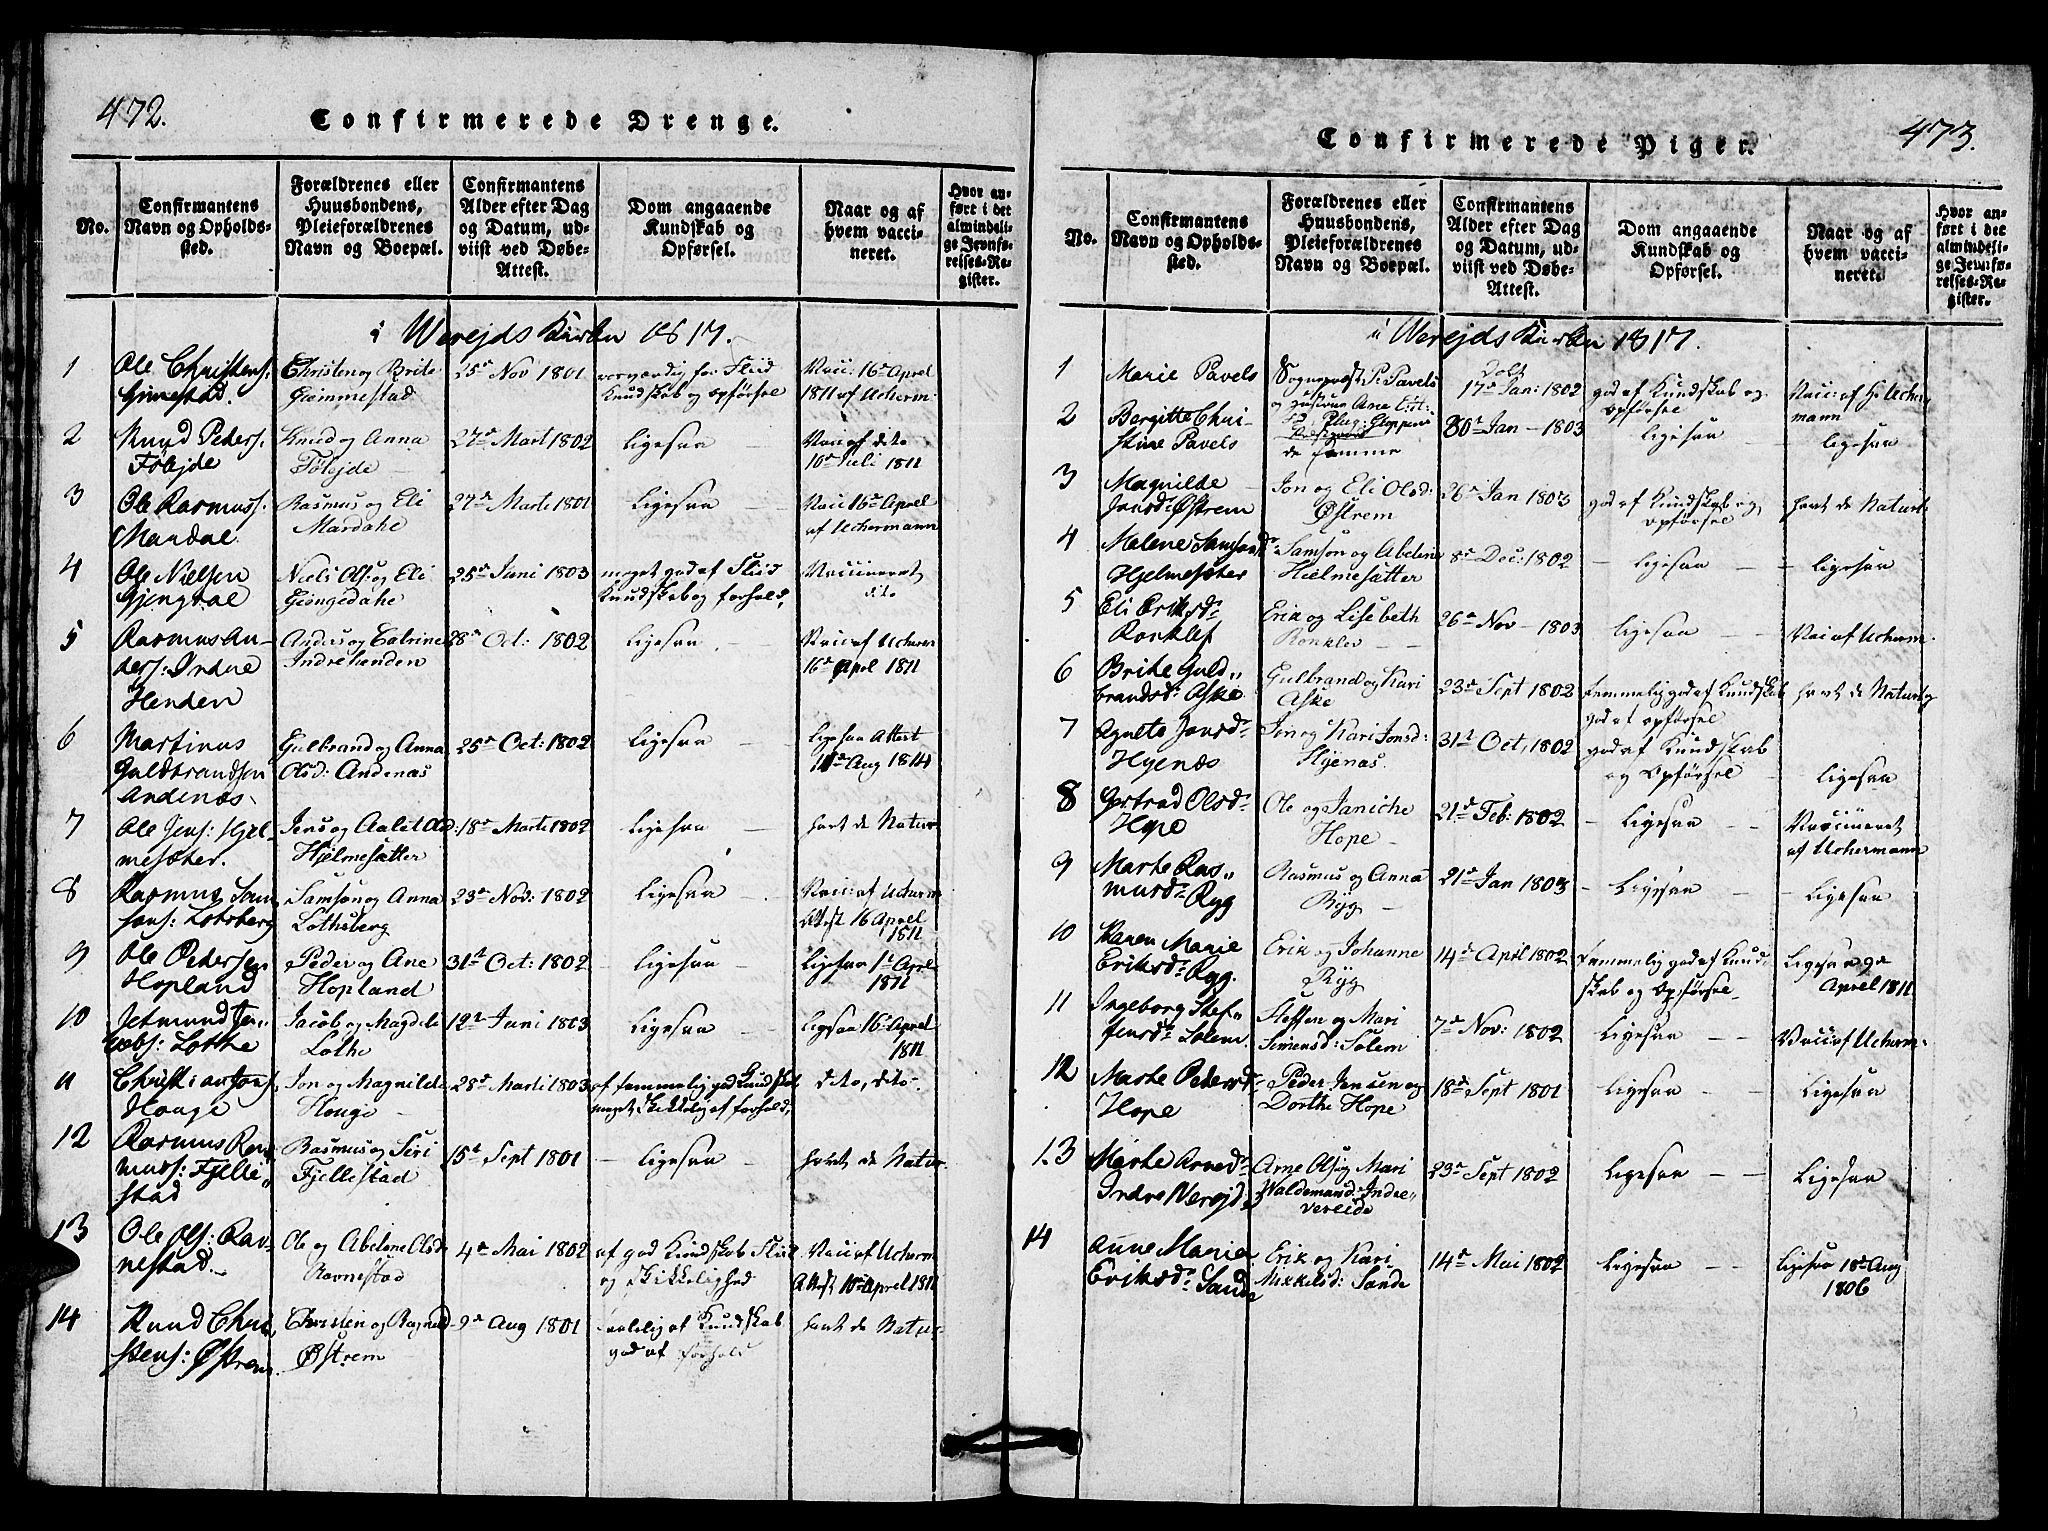 472.
Confirmerede Drenge.
No.
Confirmantens
Navn og Opholds-
sted.
Forældrenes eller
Huusbondens,
Pleieforældrenes
Navn og Boepæl.
Confirmantens
Alder efter Dag
og Datum, ud-
viist ved Døbe-
Attest.
Dom angaaende
Kundskab og
Opførsel.
Naar og af
hvem vacci-
neret.
Hvor an-
ført i det
almindeli-
ge Jevnfø-
relses-Re-
gister.
i Werejds Kirken 1817.
1
Ole Christens:
Gimestad.
Christen og Brite
Gimmestad
25de Nov 1801
værværdig for Fliid
Kundskab og opførsel
Vacc: 16de Aprel
1811 af Ucherm:
2
Knud Peders:
Følejde
Knud og Anna
Følejde
27de Mart 1802
Ligesaa
Vacc af dito
10de Juli 1811
3
Ole Rasmuss:
Mardal
Rasmus og Eli
Mardahe
27de Marti 1801
Ligesaa
Vacc 16de Aprel
af Uchermann
4
Ole Nielsen
Gjengdal
Niels Ols: og Eli
Giengedahe
25de Juni 1803
meget god af Fliid
Kundskab og forhold,
Vaccineret
dito
5
Rasmus An-
ders: Indre
Henden
Anders og Catrine
Indrehenden
28de Oct: 1802
Ligesaa
Vacc af Ucherm
16de Aprl 1811
6
Martinus
Guldbrandsen
Andenæs
Gulbrand og Anna
Olsd: Andenas
25de Oct: 1802
Ligesaa
Ligesaa Attest
11de Aug 1814
7
Ole Jens: Hjel-
mesæter.
Jens og Aalet Olsd:
Hjelmesätter
18de Marti 1802
Ligesaa
havt de Natur-
8
Rasmus Sam-
sons: Lotsberg
Samson og Anna
Lothsberg
23de Nov: 1802
Ligesaa
Vacc: af Ucherm
Attest 16 Aprel
1811
9
Ole Pedersen
Hopland
Peder og Ane
Hopland
31te Oct: 1802
Ligesaa
Ligesaa 1te Aprel
1811
10
Jetmund Ja-
cobs: Lothe
Jacob og Magdele
Lothe
12te Juni 1803
Ligesaa
Ligesaa 16de Aprel
1811
11
Christian Jons:
Houge
Jon og Magnilde
Houge
28de Marti 1803
af temmelig god Kundskab
meget skikkelig af forhold,
dito, dito
12
Rasmus Ras-
mus: Fjelle-
stad
Rasmus og Siri
Fjellestad
15de Sept 1801
Ligesaa
havt de Natur
13
Ole Ols: Rav-
nestad.
Ole og Abelone Olsd
Ravnestad
4de Mai 1802
af god Kundskab Fliid
og skikkelighed
Vacc af Ucherm
Attest 10de Aprel 1811
14
Knud Chri-
stens: Østrem
Christen og Ragnild
Østrem
9de Aug 1801
af Kundskab
god af forhold
havt de Natur-
473.
Confirmerede Piger.
No.
Confirmantens
Navn og Opholds-
sted.
Forældrenes eller
Huusbondens,
Pleieforældrenes
Navn og Boepæl.
Confirmantens
Alder efter Dag
og Datum, ud-
viist ved Døbe-
Attest.
Dom angaaende
Kundskab og
Opførsel.
Naar og af
hvem vacci-
neret.
Hvor an-
ført i det
almindeli-
ge Jevnfø-
relses-Re-
gister.
i Werejds Kirken 1817.
1
Marie Pavels
Sognepræst P. Pavels
og Hustrue Ane
17de Jan: 1802
god af Kundskab og
opførsel
Vacc: af H. Ucher-
mann
2
Bergitte Chri-
stine Pavels
de samme
30te Jan 1803
Ligesaa
Ligesaa
3
Magnilde
Jonsdr Østrem
Jon og Eli Olsd:
Østrem
26de Jan 1803
god af Kundskab og
opførsel
havt de Naturl.
4
Malene Samsonsdr
Hjelmesæter
Samson og Abelone
Hielmesätter
8de Dec: 1802
Ligesaa
Ligesaa
5
Eli Eriksdr
Ronklef
Erik og Lisebeth
Ronklev
26de Nov 1803
Ligesaa
Vacc af Ucherm-
6
Brite Guld-
brandsdr Aske
Gulbrand og Kari
Aske
23de Sept 1802
temmelig god af Kundskab
god af opførsel
havt de Naturlig
7
Agnete Jonsdr
Hyenæs
Jon og Kari Jonsd:
Hyenas
31te Oct, 1802
god af Kundskab
og Opførsel
Ligesaa
8
Gertrud Olsdr
Hope
Ole og Janiche
Hope
21de Feb: 1802
Ligesaa
Vaccineret
af Uchermann
9
Marte Ras-
musdr Ryg
Rasmus og Anna
Ryg
21de Jan 1803
Ligesaa
Ligesaa
10
Karen Marie
Eriksdr Ryg.
Erik og Johanne
Ryg
14de April 1802
temmelig god af Kund-
skab og Opførsel
Ligesaa
Aprel 1811
11
Ingeborg Stef-
fensdr Solem.
Steffen og Mari
Simensd: Solem
7de Nov: 1802
Ligesaa
Vacc af Ucherm-
12
Marte Pedersdr
Hope
Peder Jensen og
Dorthe Hope
18de Sept 1801
Ligesaa
Ligesaa
13
Marte Arnedr
Indre Verejde
Arne Ols: og Mari
Waldemand: Indre-
vereide
23de Sept 1802
Ligesaa
Ligesaa
14
Anne Maria
Eriksdr Sande
Erik og Kari
Mikkelsd: Sande
14de Mai 1802
Ligesaa
Ligesaa 18de Aug
1806